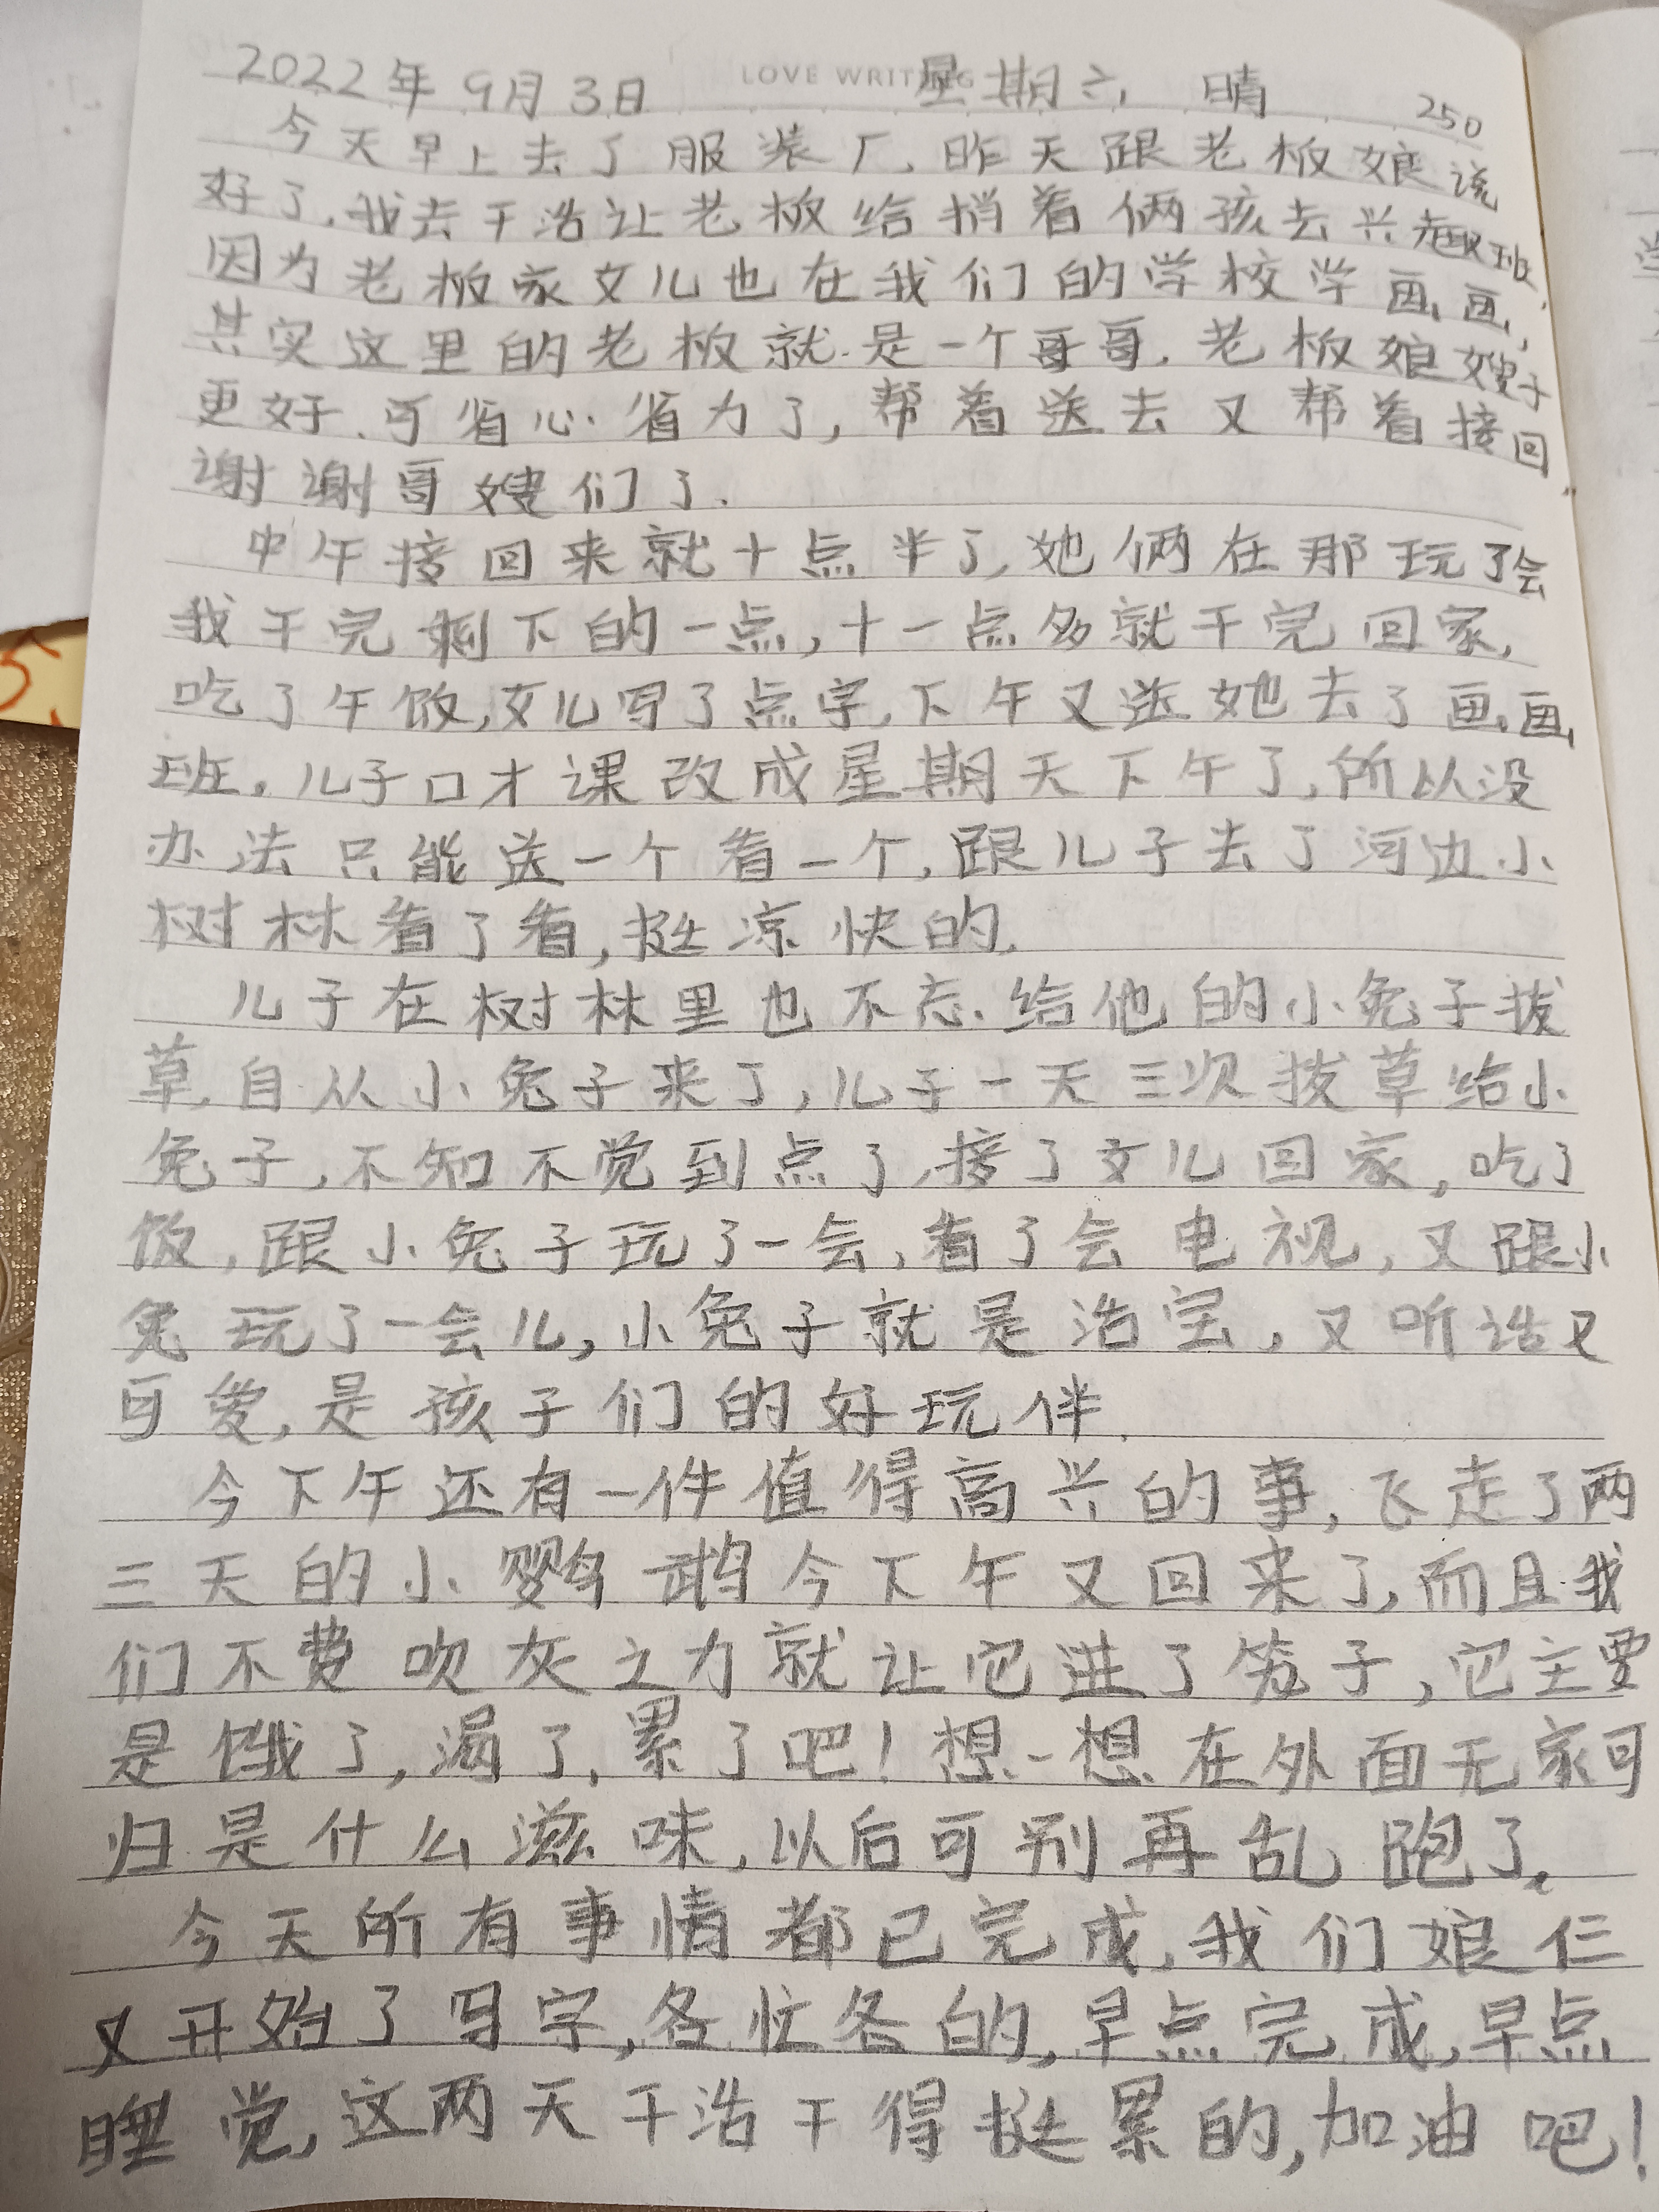 LOVE WRITING
2022年9月3日 星期六 晴 250
今天早上去了服装厂,昨天跟老板娘说
好了,我去干活让老板给捎着俩孩去兴趣班,
因为老板家女儿也在我们的学校学画画,
其实这里的老板就是一个哥哥,老板娘嫂子
更好,可省心省力了,帮着送去又帮着接回,
谢谢哥嫂们了.
中午接回来就十点半了,她俩在那玩了会
我干完剩下的一点,十一点多就干完回家,
吃了午饭,女儿写了点字,下午又送她去了画画
班,儿子口才课改成星期天下午了,所以没
办法只能送一个看一个,跟儿子去了河边小
树林看了看,挺凉快的.
儿子在树林里也不忘给他的小兔子拔
草,自从小兔子来了,儿子一天三次拔草给小
兔子,不知不觉到点了,接了女儿回家,吃了
饭,跟小兔子玩了一会,看了会电视,又跟小
兔玩了一会儿,小兔子就是活宝,又听话又
可爱,是孩子们的好玩伴.
今下午还有一件值得高兴的事,飞走了两
三天的小鹦鹉今下午又回来了,而且我
们不费吹灰之力就让它进了笼子,它主要
是饿了,渴了,累了吧!想一想在外面无家可
归是什么滋味,以后可别再乱跑了.
今天所有事情都已完成,我们娘仨
又开始了写字,各忙各的,早点完成,早点
睡觉,这两天干活干得挺累的,加油吧!